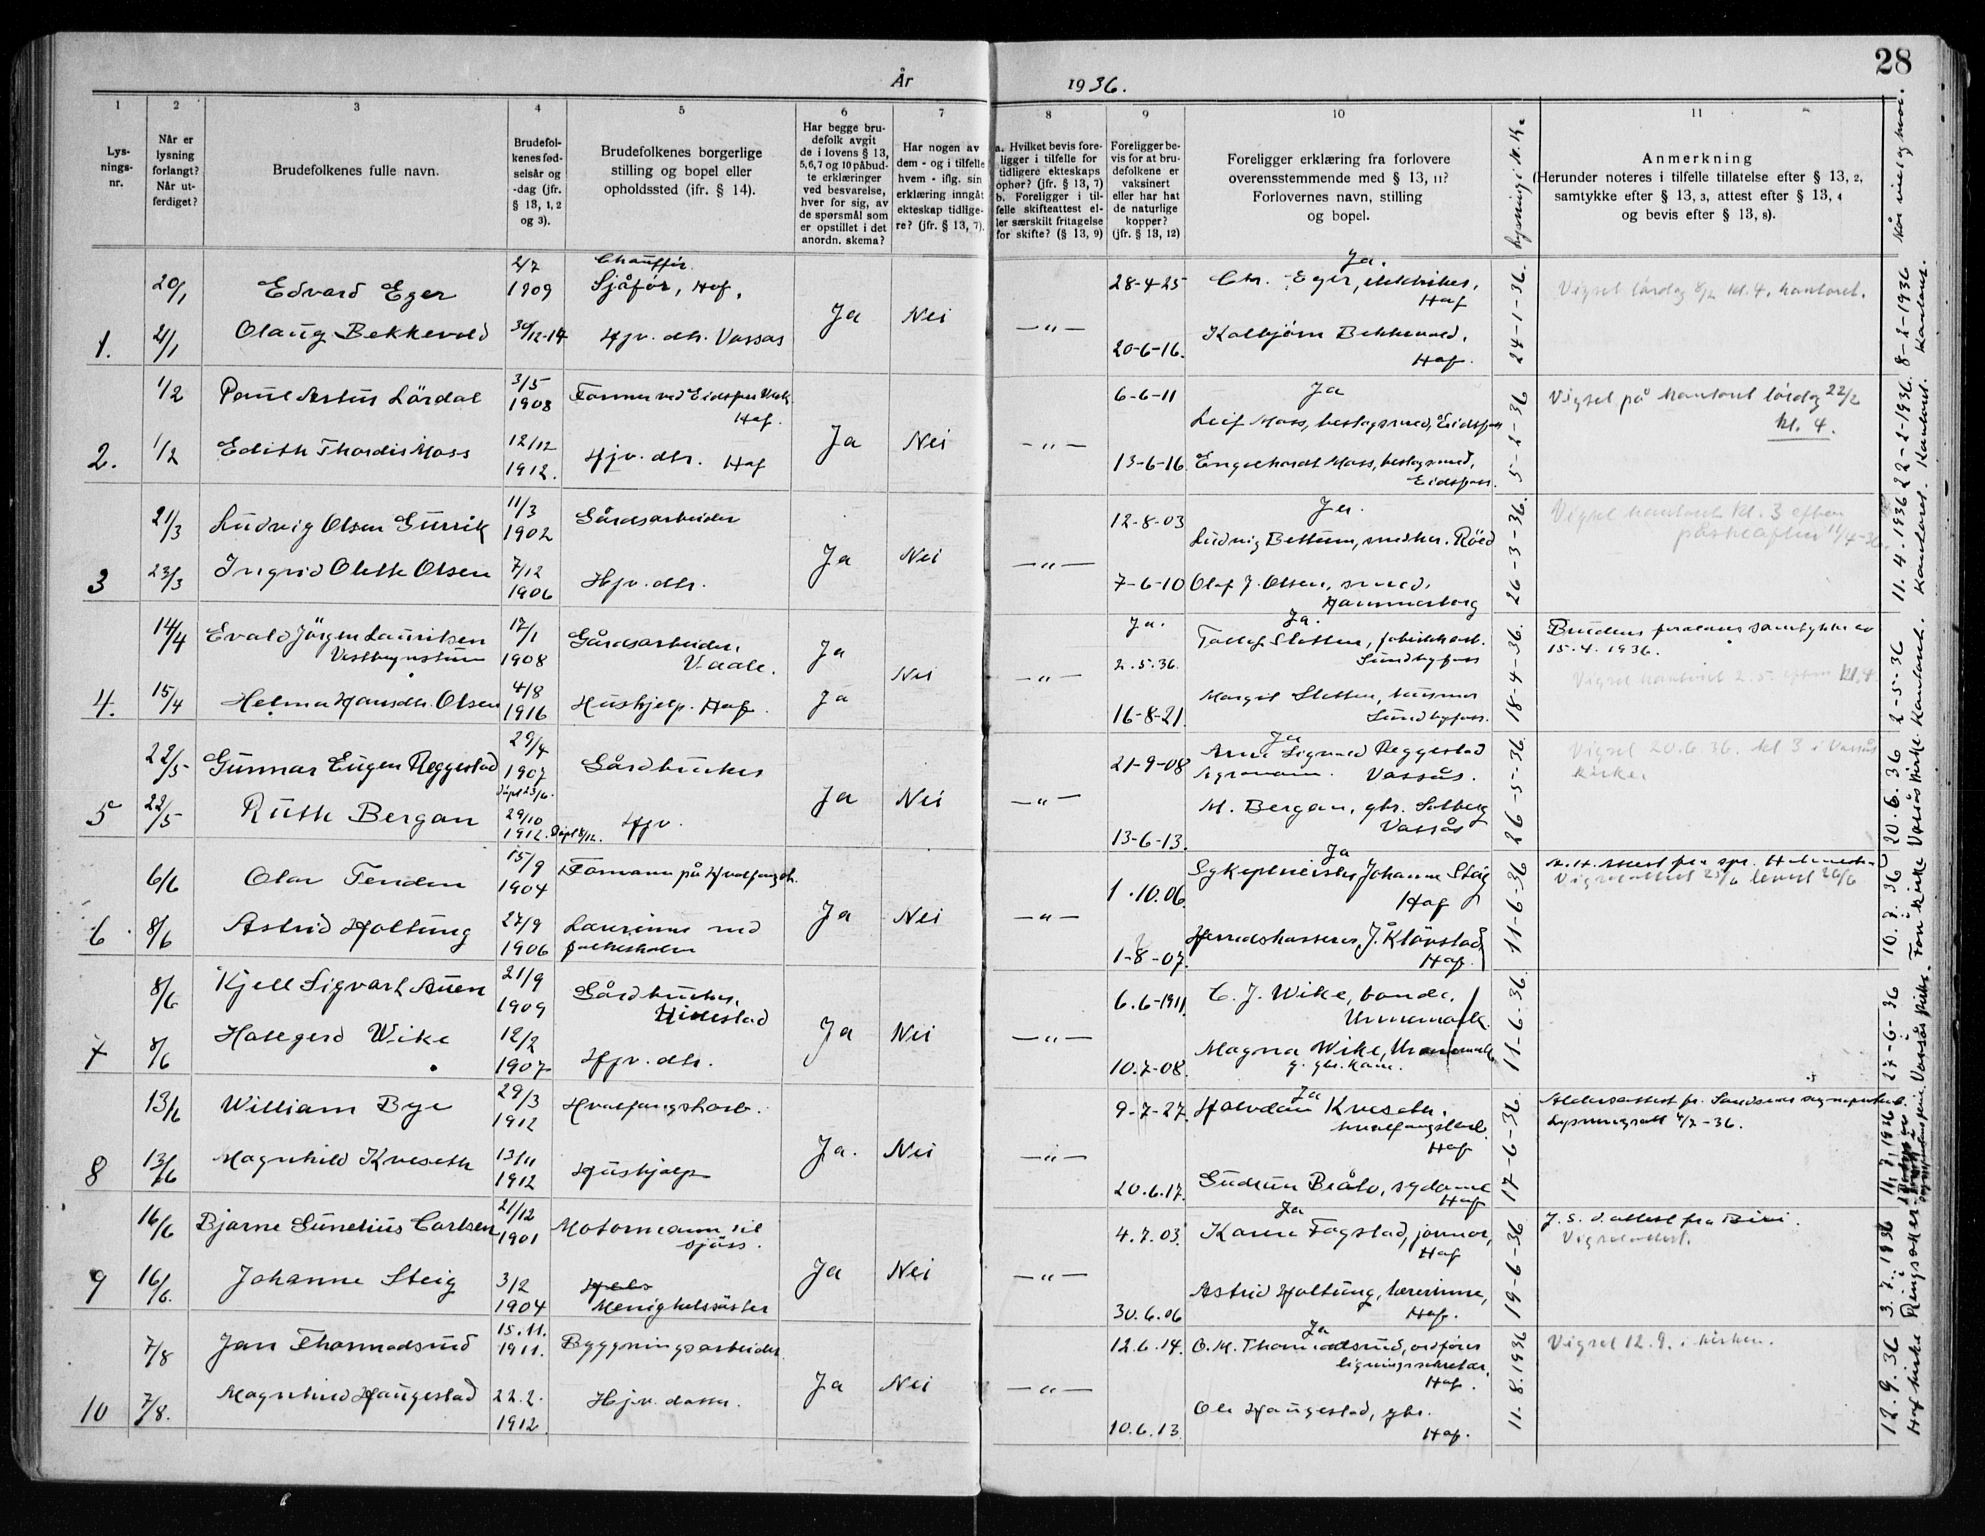 28
År 1936.
1 2 3 4 5 6 7 8 9 10 11
Lys-
nings-
nr.
Når er
lysning
forlangt?
Når ut-
ferdiget?
Brudefolkenes fulle navn.
Brudefol-
kenes fød-
selsår og
-dag (jfr.
§ 13, 1, 2
og 3).
Brudefolkenes borgerlige
stilling og bopel eller
opholdssted (ifr. § 14).
Har begge bru-
defolk avgit
de i lovens § 13,
5, 6, 7 og 10 påbud-
te erklæringer
ved besvarelse,
hver for sig, av
de spørsmål som
er opstillet i det
anordn. skema?
Har nogen av
dem - og i tilfelle
hvem - iflg. sin
erklæring inngåt
ekteskap tidlige-
re? (jfr. § 13, 7).
a. Hvilket bevis fore-
ligger i tilfelle for
tidligere ekteskaps
ophør? (jfr. § 13, 7)
b. Foreligger i til-
felle skifteattest el-
ler særskilt fritagelse
for skifte? (§ 13, 9)
Foreligger be-
vis for at bru-
defolkene er
vaksinert
eller har hat
de naturlige
kopper?
(jfr. § 13, 12)
Foreligger erklæring fra forlovere
overensstemmende med § 13, 11?
Forlovernes navn, stilling
og bopel.
Anmerkning
(Herunder noteres i tilfelle tillatelse efter § 13, 2,
samtykke efter § 13, 3, attest efter § 13, 4
og bevis efter § 13, 8).
når viet og hvor.
1.
20/1 Edvard Eger 2/7 1909 Chauffør. Sjåfør, Hof,
21/1 Olaug Bekkevold 30/12-14 Hjv. dtr. Vassas
Ja Nei —"—
28-4-25 Ja. Chr. Eger, elektriker, Hof
20-6-16. Kolbjörn Bekkevold, Hof.
24-1-36.
Vigsel lördag 8/2 kl. 4. kontoret.
8-2-1936 Kontoret.
2.
1/2 Paul Astus Lördal 3/5 1908 Former ved Eidsfos Verk Hof.
1/2 Edith Thordis Moss 12/12 1912. Hjv. dtr. Hof
Ja Nei —"—
6-6-11 Ja Leif Moss, beslagsmed, Eidsfoss
13-6-16. Engelhardt Moss, beslagsmed, Eidsfoss.
5-2-36
Vigsel på kontoret lördag 22/2
kl. 4.
22-2-1936. Kontoret.
3
21/3 Ludvig Olsen Gurrik 11/3 1902 Gårdsarbeider
23/3 Ingrid Olette Olsen 7/12 1906 Hjv. dtr.
Ja Nei —"—
12-8-03 Ja. Ludvig Bettum, snekker. Röed
7-6-10 Olaf J. Olsen, smed, Hammerborg
26-3-36.
Vigsel kontoret kl. 3 efterm
påskeaften 11/4-36.
11.4.1936 Kontoret.
4.
14/4 Evald Jörgen Lauritsen 17/1 1908 Gårdsarbeider, Vaale.
15/4 Helma Hansdtr. Olsen 4/8 1916 Hushjelp. Hof.
Ja Ja Nei —"—
Ja. 2.5.36. Ja. Tollef Sletten, Sundbyfoss
16-8-21. Margit Sletten, husmor Sundbyfoss.
18-4-36.
Brudens forældres samtykke av
15.4.1936.
Vigsel kontoret 2.5. efterm kl. 4
2-5-36 Kontoret.
5
22/5 Gunnar Eugen Reggestad 29/4 1907 Gårdbruker
22/5 Ruth Bergan 29/10 1912. Hjv.
Ja Nei —"—
21-9-08 Ja Arne Sigurd Reggestad Agronom. Vassås.
13-6-13. M. Bergan, gbr. Solberg Vassås
26-5-36.
Vigsel 20.6.36. kl 3 i Vassås
kirke.
20.6.36 Vassås kirke
6
6/6 Olav Tenden 15/9 1904 Formann på Hvalfangst.
8/6 Astrid Holtung 27/9 1906 Lærerinne ved folkeskolen
Ja Nei —"—
1.10.06. Ja Sykepleierske Johanne Steig Hof
1-8-07. Herredskasserer J. Klövstad Hof.
11-6-36
Vigselattest 25/6 levert 26/6
10.7.36
7
8/6 Kjell Sigvart Auen 21/9 1909 Gårdbruker, Hillestad
8/6 Hallgerd Wike 12/2 1907 Hjv. dtr.
Ja Nei —"—
6.6-1911 C. J. Wike, bonde, Unnemark.
10.7-08. Magna Wike, Unnemark g. gbr. kone.
11-6-36
27-6-36 Vassås kirke.
8
13/6 William Bye 29/3 1912 Hvalfangstarb.
13/6 Magnhild Kveseth 13/11 1912 Hushjelp
Ja. Nei —"—
9-7-27. Ja Halvdan Kveseth, hvalfangstarb. Hof
20.6.17. Gudrun Bråto, sydame Hof
17-6-36.
Aldersattest fr. Sandsvær sogneprestemb.
Lysningsatt 4/7-36.
11.7.1936
9
16/6 Bjarne Sunelius Carlsen 21/12 1901 Motormann til sjöss.
16/6. Johanne Steig 3/2 1904 Menighetssöster
Ja Nei —"—
4.7.03. Ja Karen Fogstad, jormor, Hof
30.6.06 Astrid Holtung, lærerinne, Hof.
19-6-36
J. S. d. attest fra Biri.
Vigselattest.
3.7.1936 Ringsaker
10
7/8 Jan Thormodsrud 15.11. 1911. Byggningsarbeider
7/8. Magnhild Haugestad 22.2. 1912 Hjv. datter.
Ja Nei —"—
12.6.14. Ja O. M. Thormodsrud, ordfører ligningssekretær, Hof.
10.6.13 Ole Haugestad, gbr. Hof.
11.8.1936
Vigsel 12.9. i kirken.
12.9.36 Hof kirke